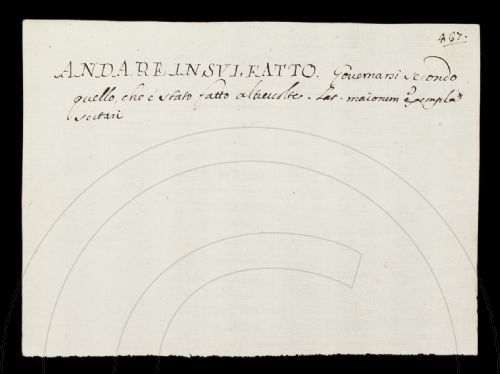 487.
ANDARE IN SUL FATTO. Governarsi secondo
quello, che è stato fatto altrevolte. Lat. maiorum exempla
sectari